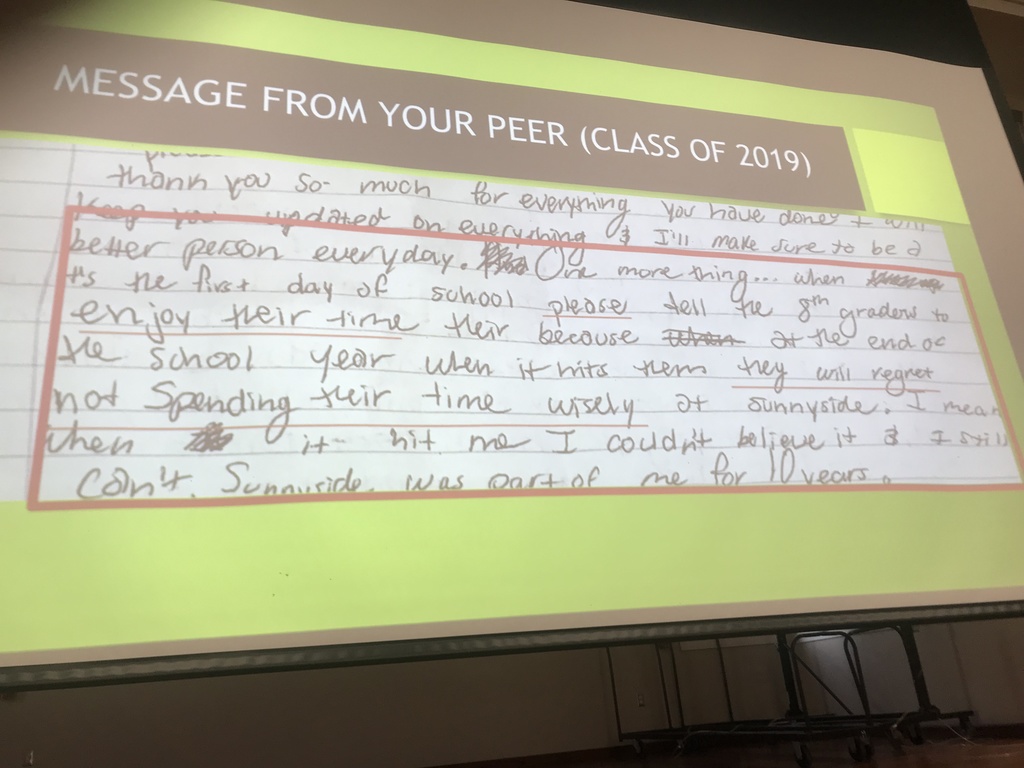 MESSAGE FROM YOUR PEER (CLASS OF 2019)
thank you so much for everything you have done & I will
Keep you updated on everything & I'll make sure to be a
better person everyday. One more thing... when
it's the first day of school please tell the 8th graders to
enjoy their time their because when at the end of
the school year when it hits them they will regret
not Spending their time wisely at Sunnyside. I mean
when it hit me I couldn't believe it & I still
can't. Sunnyside was part of me for 10 years.